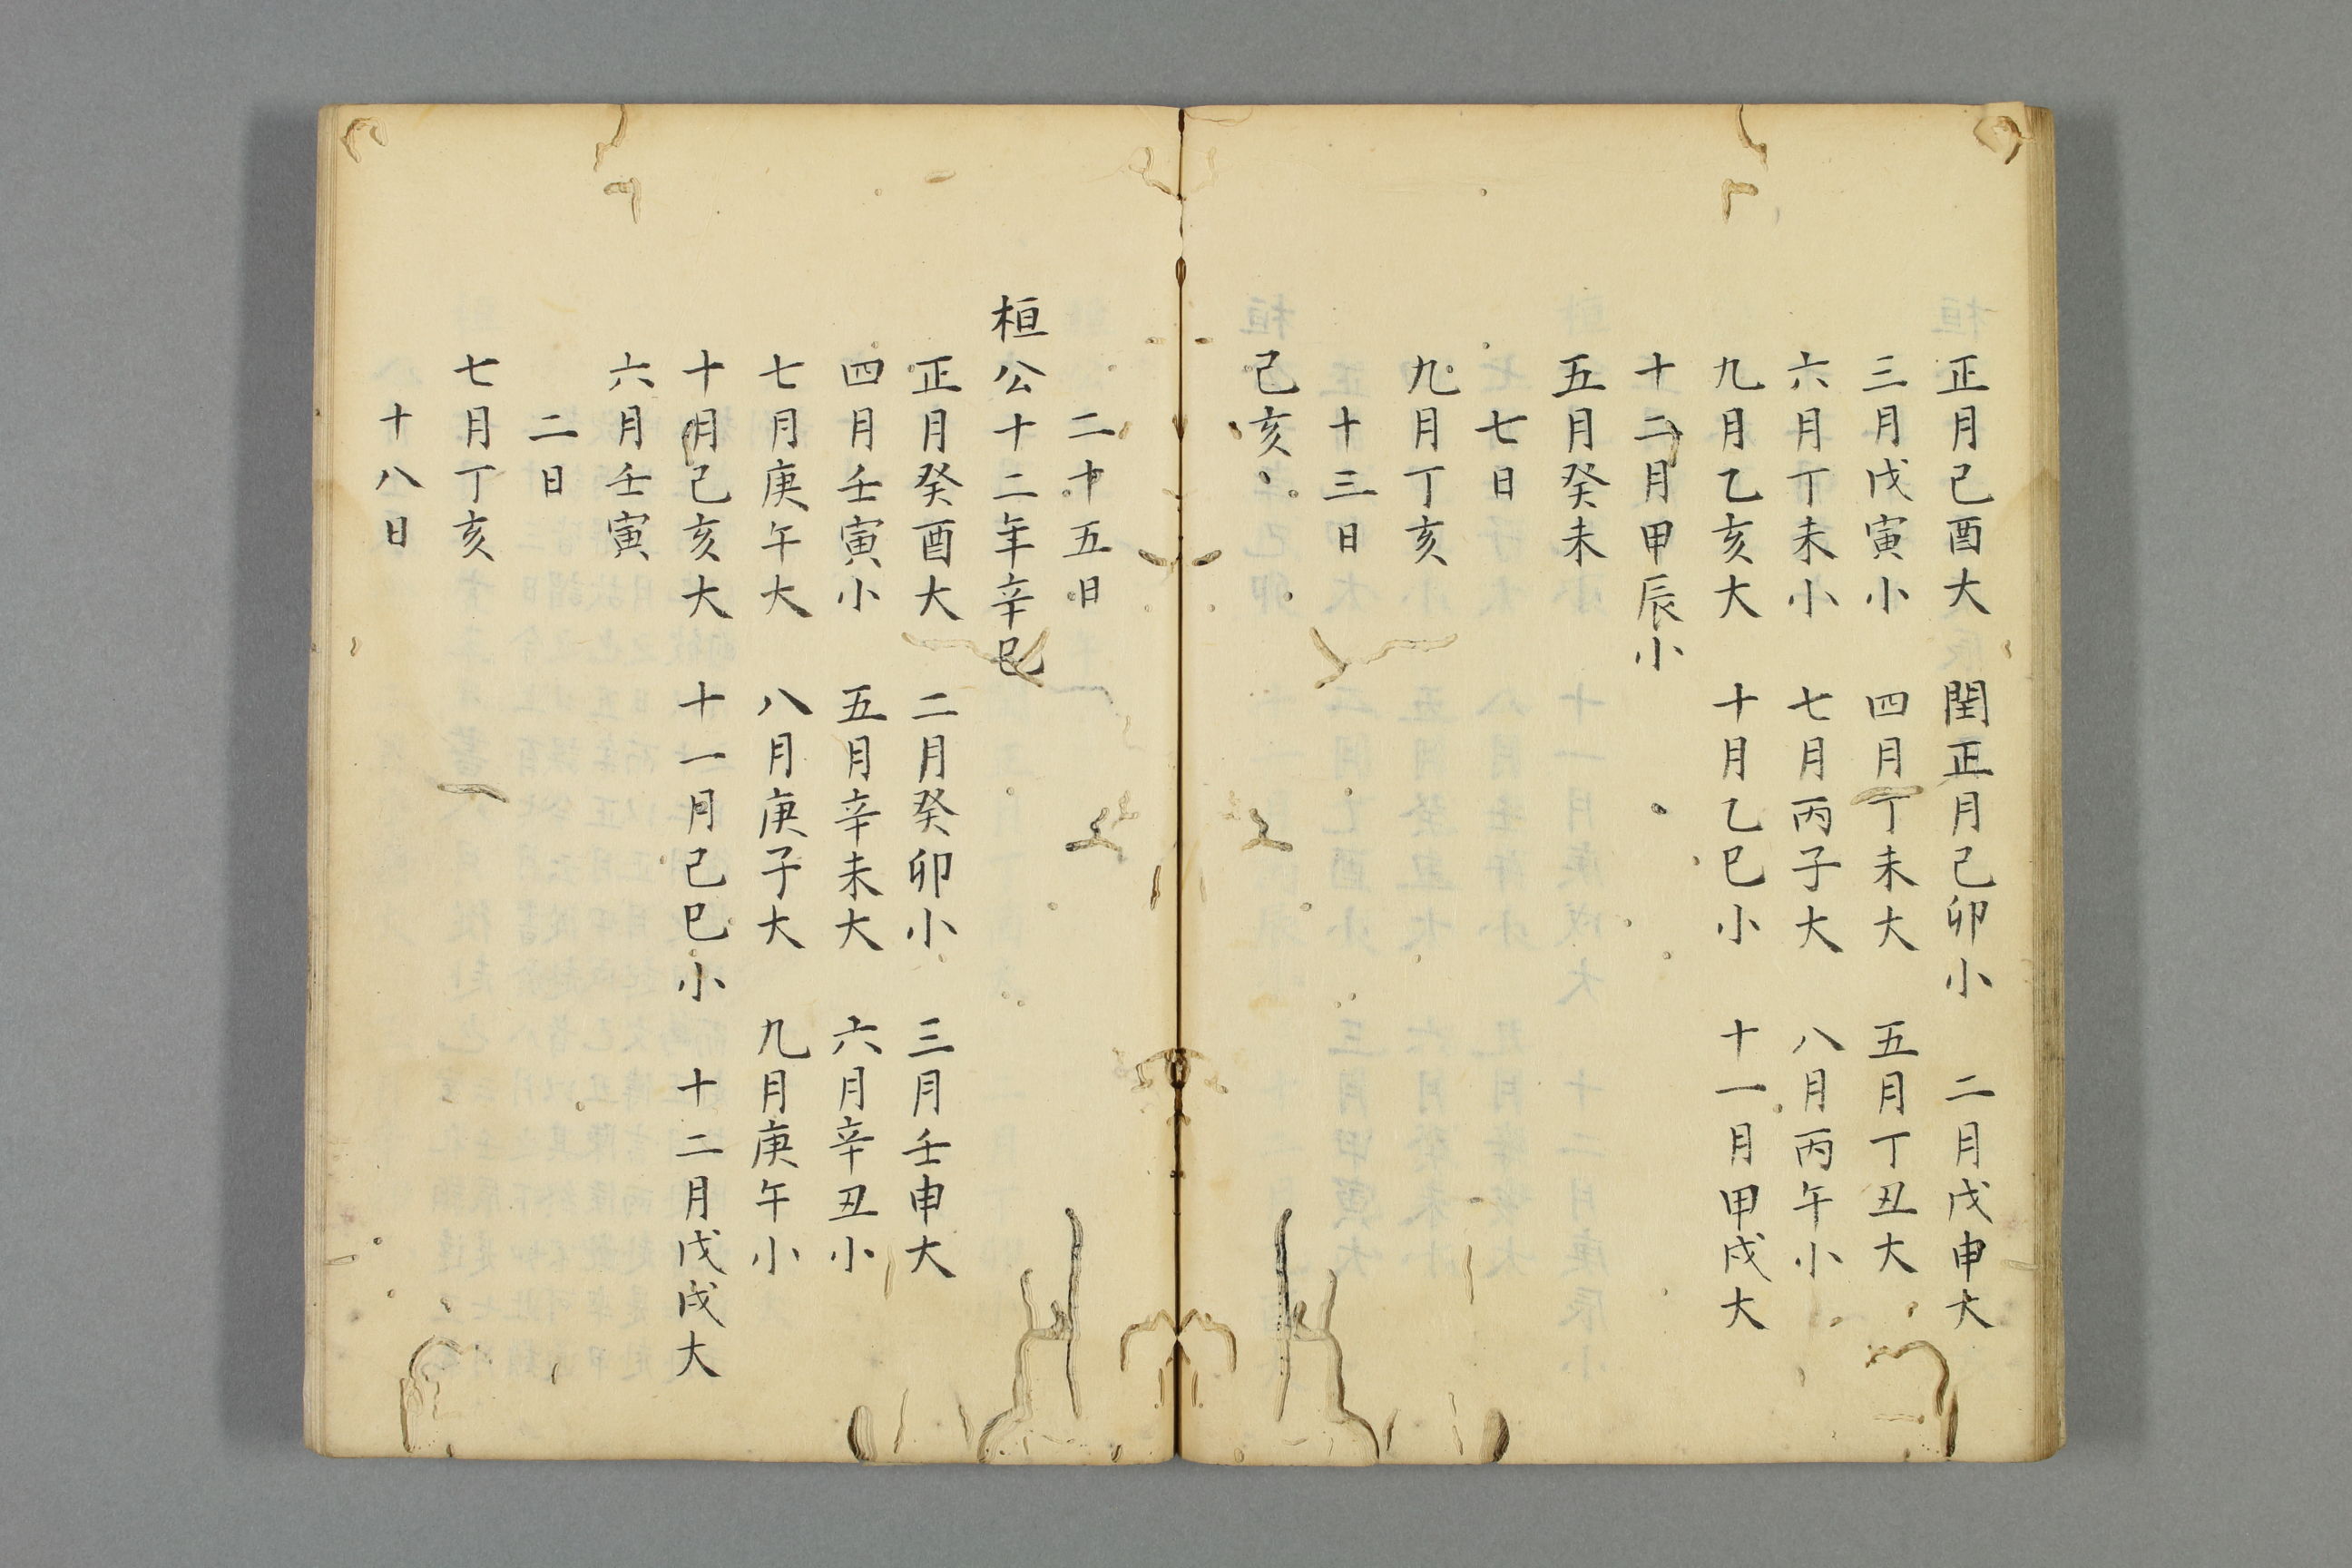 正月己酉大 閏正月己卯小 二月戊申大
三月戊寅小 四月丁未大 五月丁丑大
六月丁未小 七月丙子大 八月丙午小
九月乙亥大 十月乙巳小 十一月甲戌大
十二月甲辰小
五月癸未
七日
九月丁亥
十三日
己亥
二十五日
桓公十二年辛巳
正月癸酉大 二月癸卯小 三月壬申大
四月壬寅小 五月辛未大 六月辛丑小
七月庚午大 八月庚子大 九月庚午小
十月己亥大 十一月己巳小 十二月戊戌大
六月壬寅
二日
七月丁亥
十八日